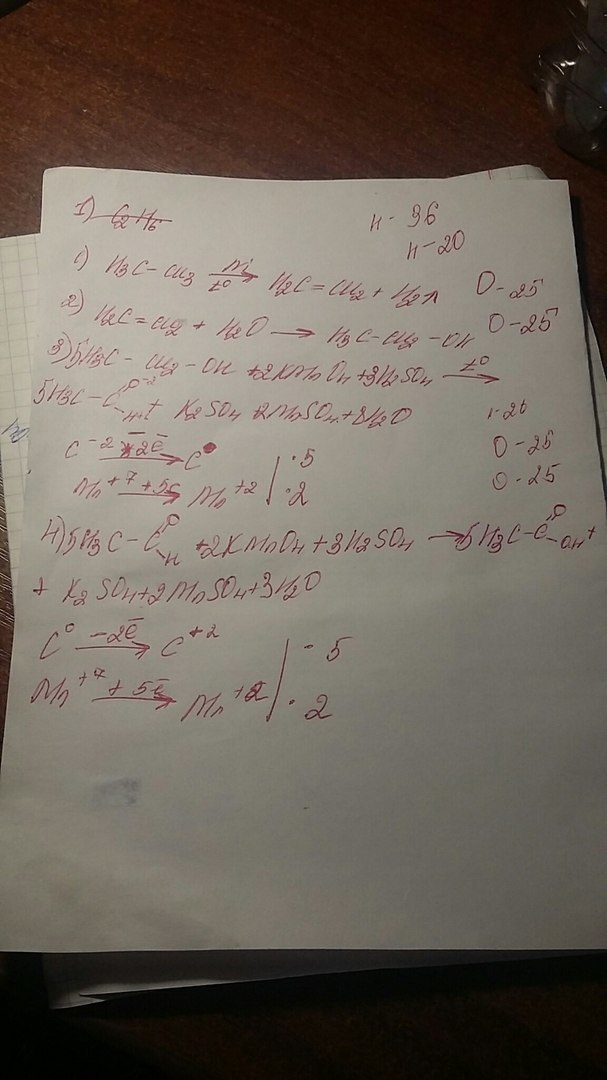 1) C2H6
H - 96
H - 20
1) H3C - CH3 Ni t° → H2C = CH2 + H2↑
0 - 25
2) H2C = CH2 + H2O → H3C - CH2 - OH
0 - 25
3) 5H3C - CH2 - OH + 2KMnO4 + 3H2SO4 t° →
5H3C - C O H + K2SO4 2MnSO4 + 8H2O
1 - 26
C -2 -2e → C 0 · 5
0 - 25
Mn +7 +5e → Mn +2 · 2
0 - 25
4) 5H3C - C O H + 2KMnO4 + 3H2SO4 → 5H3C - C O OH +
+ K2SO4 + 2MnSO4 + 3H2O
C 0 -2e → C +2 · 5
Mn +7 +5e → Mn +2 · 2